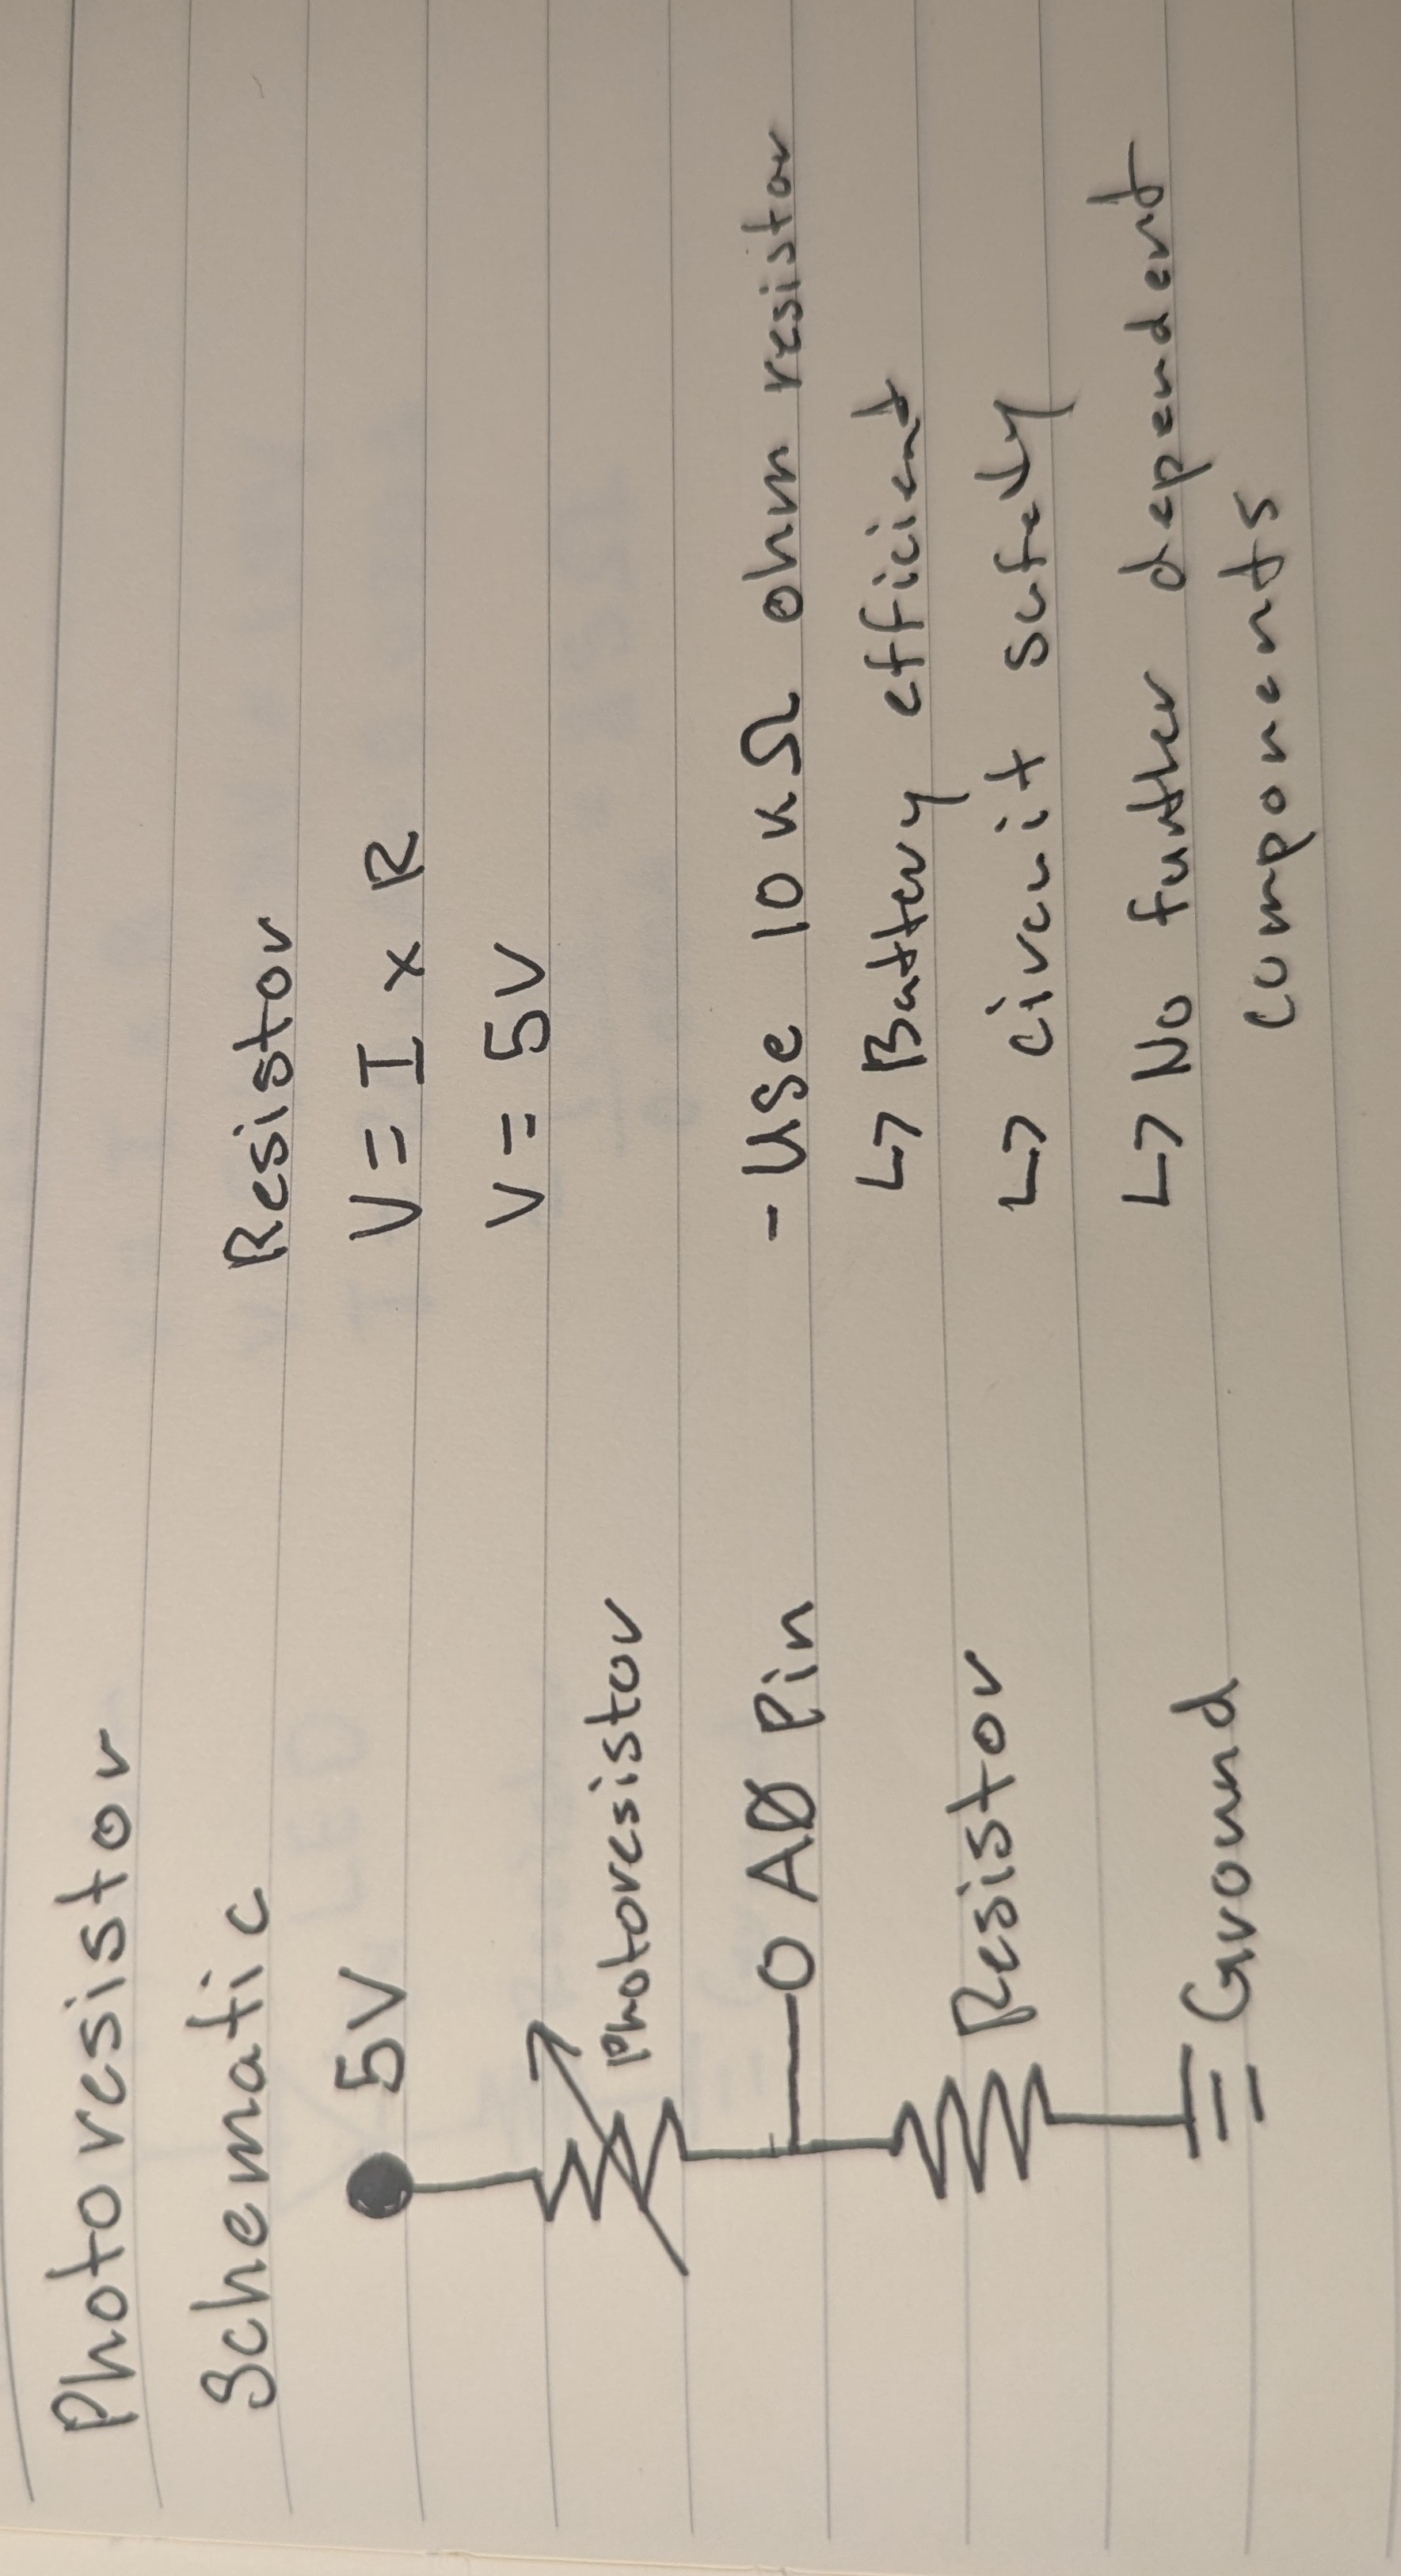 Photoresistor
Schematic
5V
Photoresistor
AØ Pin
Resistor
Ground
Resistor
V = I x R
V = 5V
- Use 10 KΩ ohm resistor
↳ Battery efficient
↳ circuit safety
↳ No further dependent
components